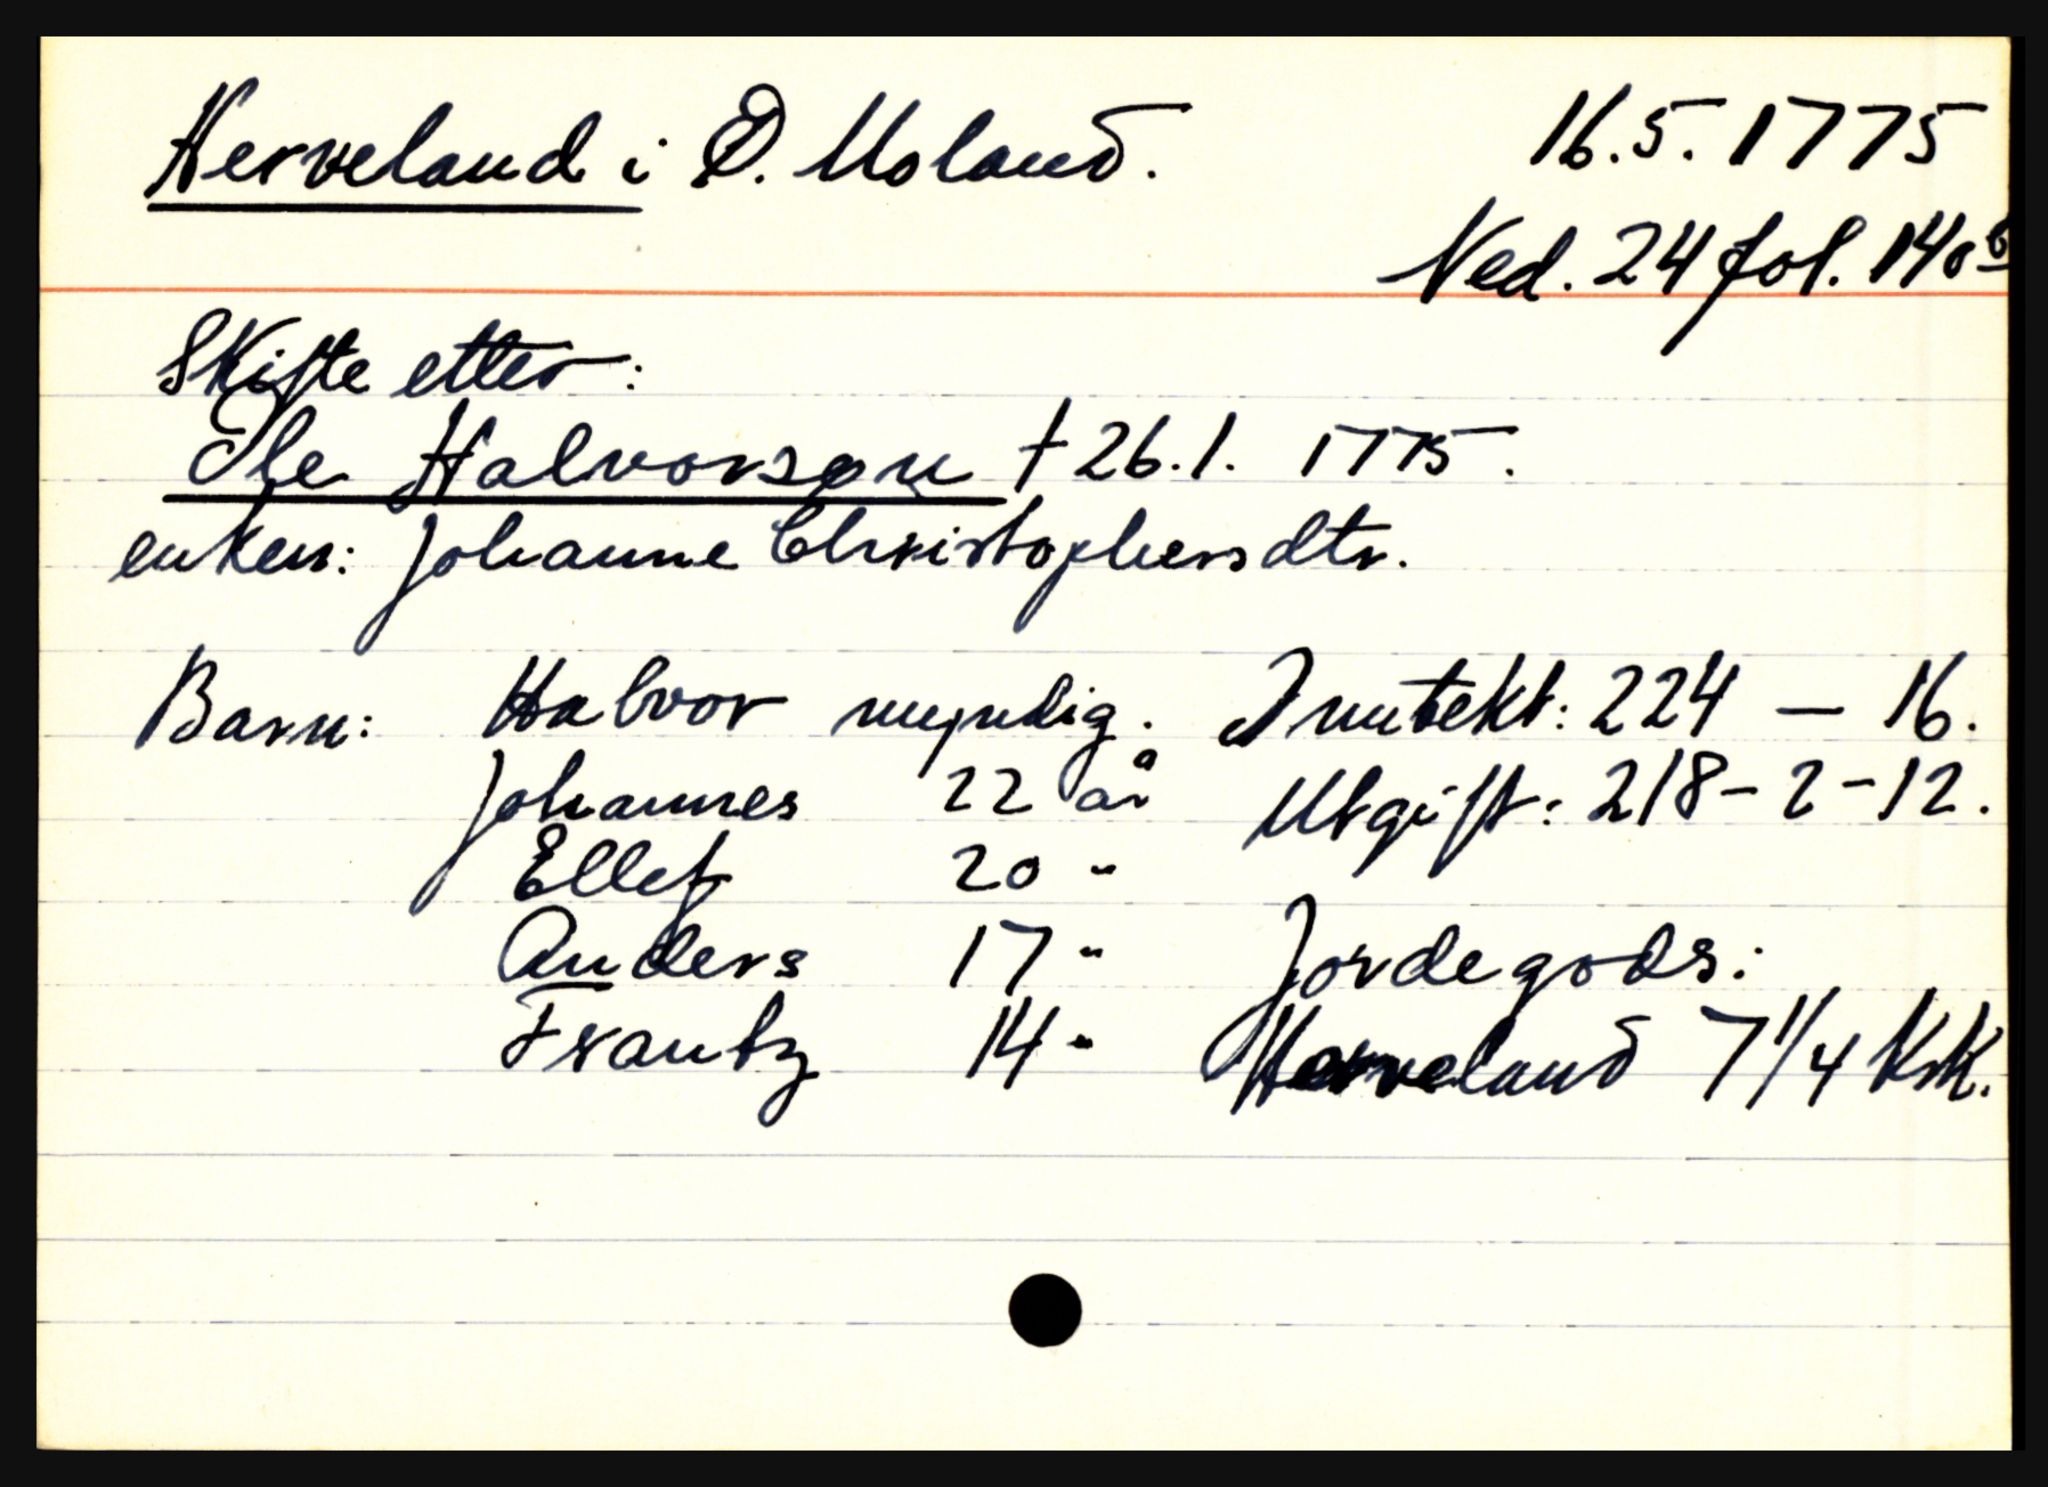 Herveland i Ø. Moland. 16.5.1775
Ned. 24 fol. 140b
Skifte etter:
Ole Halvorsøn † 26.1. 1775.
enken: Johanne Christophersdtr.
Barn: Halvor myndig. Inntekt: 224 — 16.
Johannes 22 år Utgift: 218 - 2 - 12.
Ellef 20 "
Anders 17 " Jordegods:
Frantz 14 " Herveland 7 1/4 Kr K.